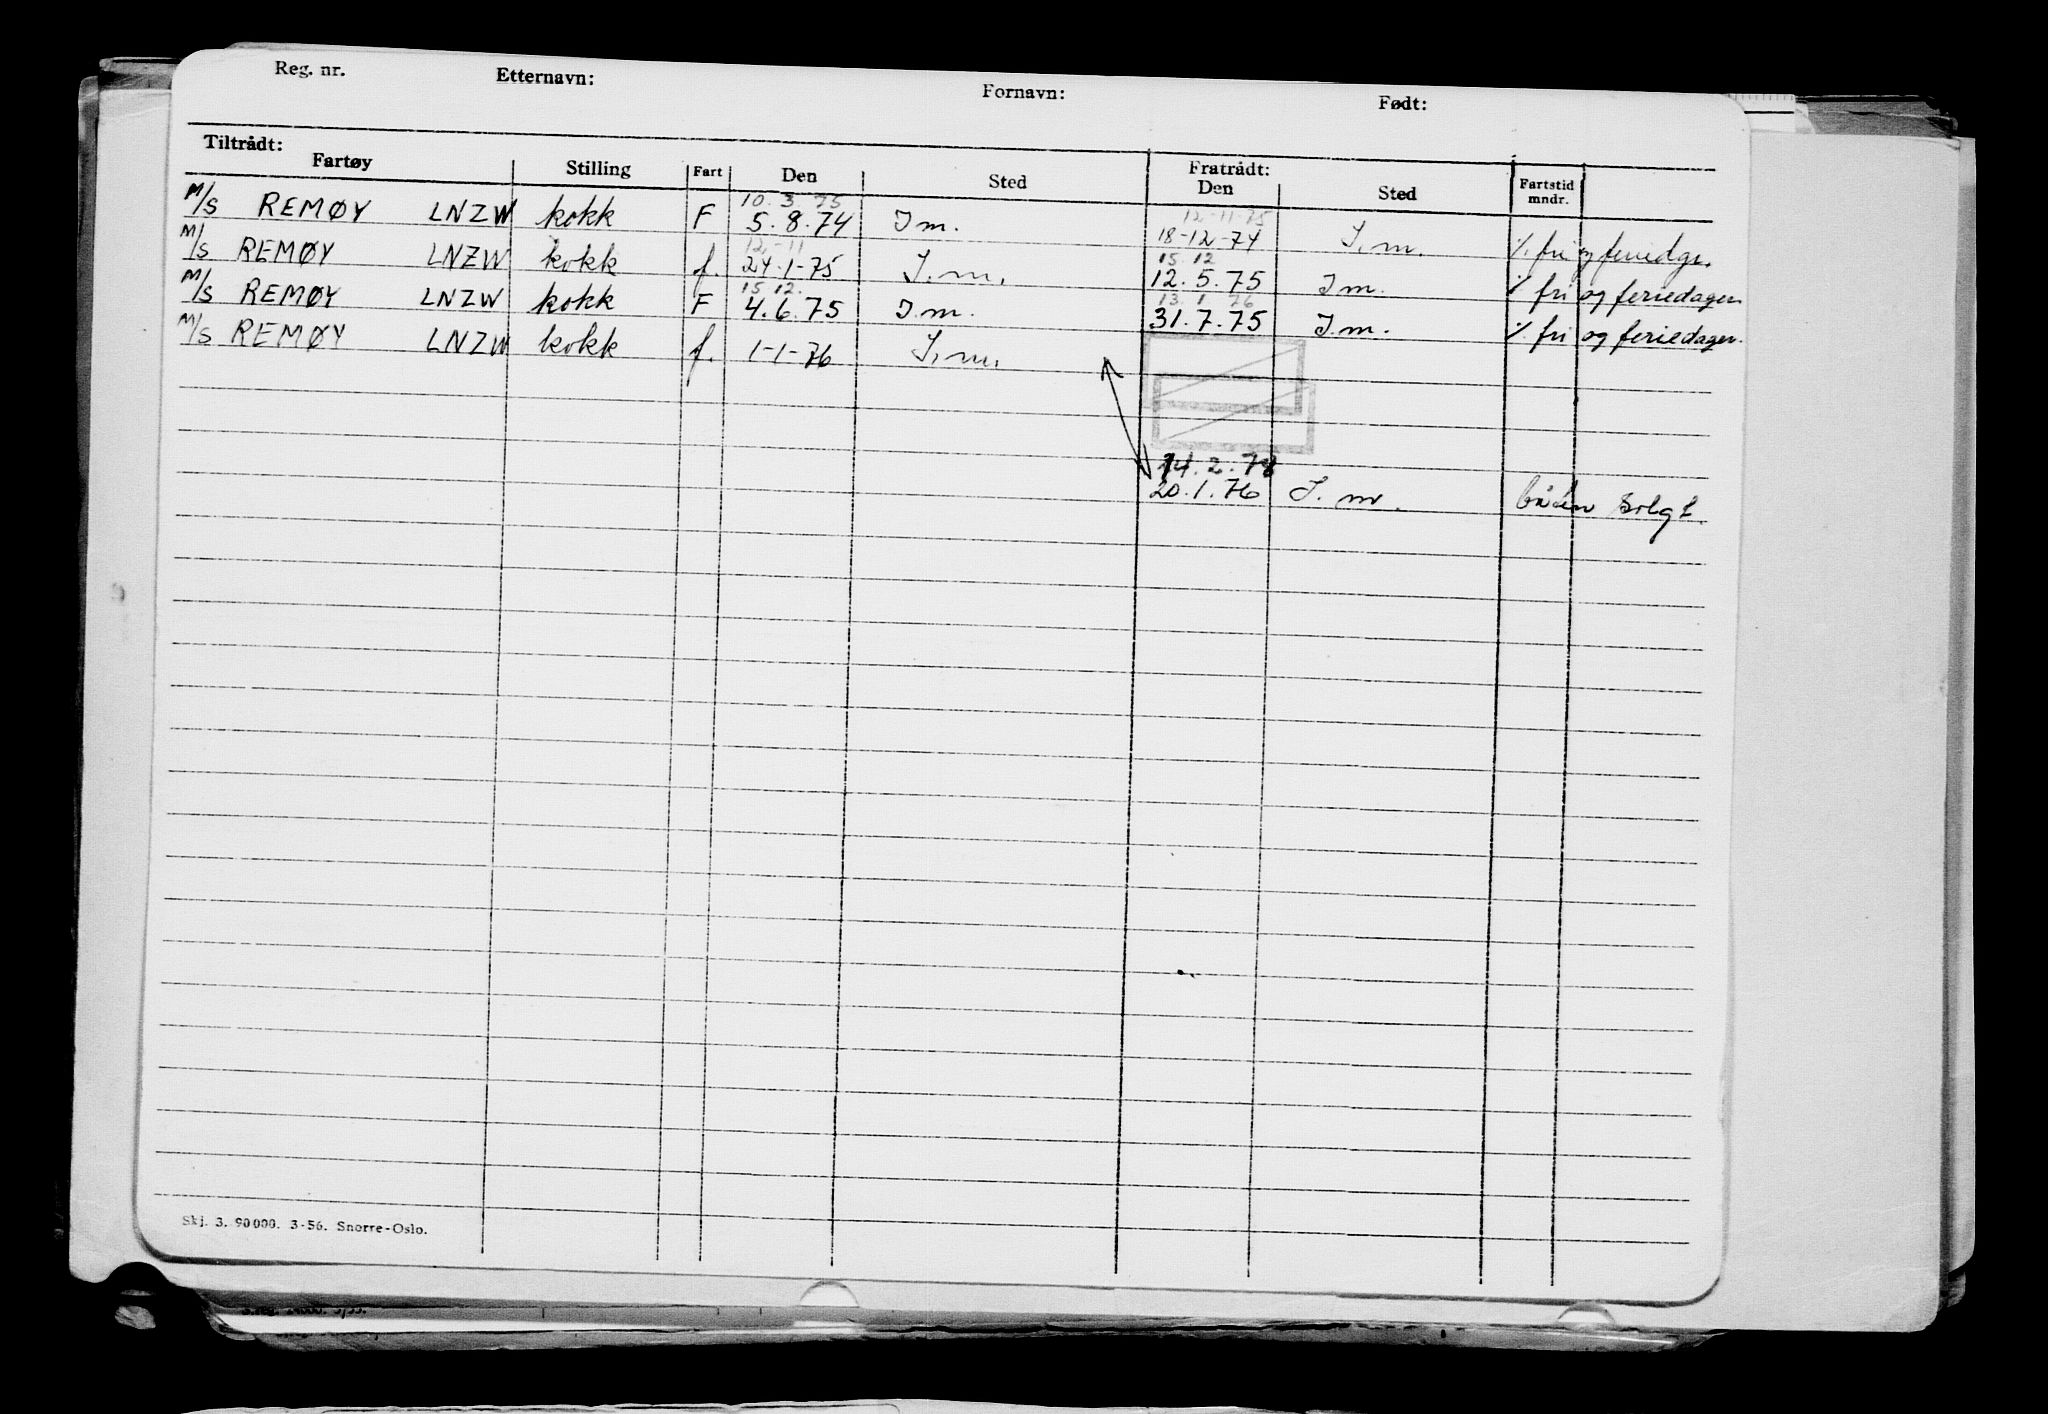 Reg. nr. Etternavn: Fornavn: Født:
Tiltrådt: Fratrådt:
Fartøy Stilling Fart Den Sted Den Sted Fartstid mndr.
10. 3. 75 12-11-75
M/S REMØY LNZW kokk F 5.8.74 I m. 18-12-74 I. m. % fri og feriedgr.
12.-11 15.12
M/S REMØY LNZW kokk f. 24-1-75 I. m. 12.5.75 I m. % fri og feriedager
15 12. 13. 1. 76
M/S REMØY LNZW kokk F 4.6.75 I. m. 31.7.75 I. m. % fri og feriedager.
M/S REMØY LNZW kokk f. 1-1-76 I. m.
14.2.78
20.1.76 I. m. båten solgt.
Skj. 3. 90000. 3-56. Snorre-Oslo.